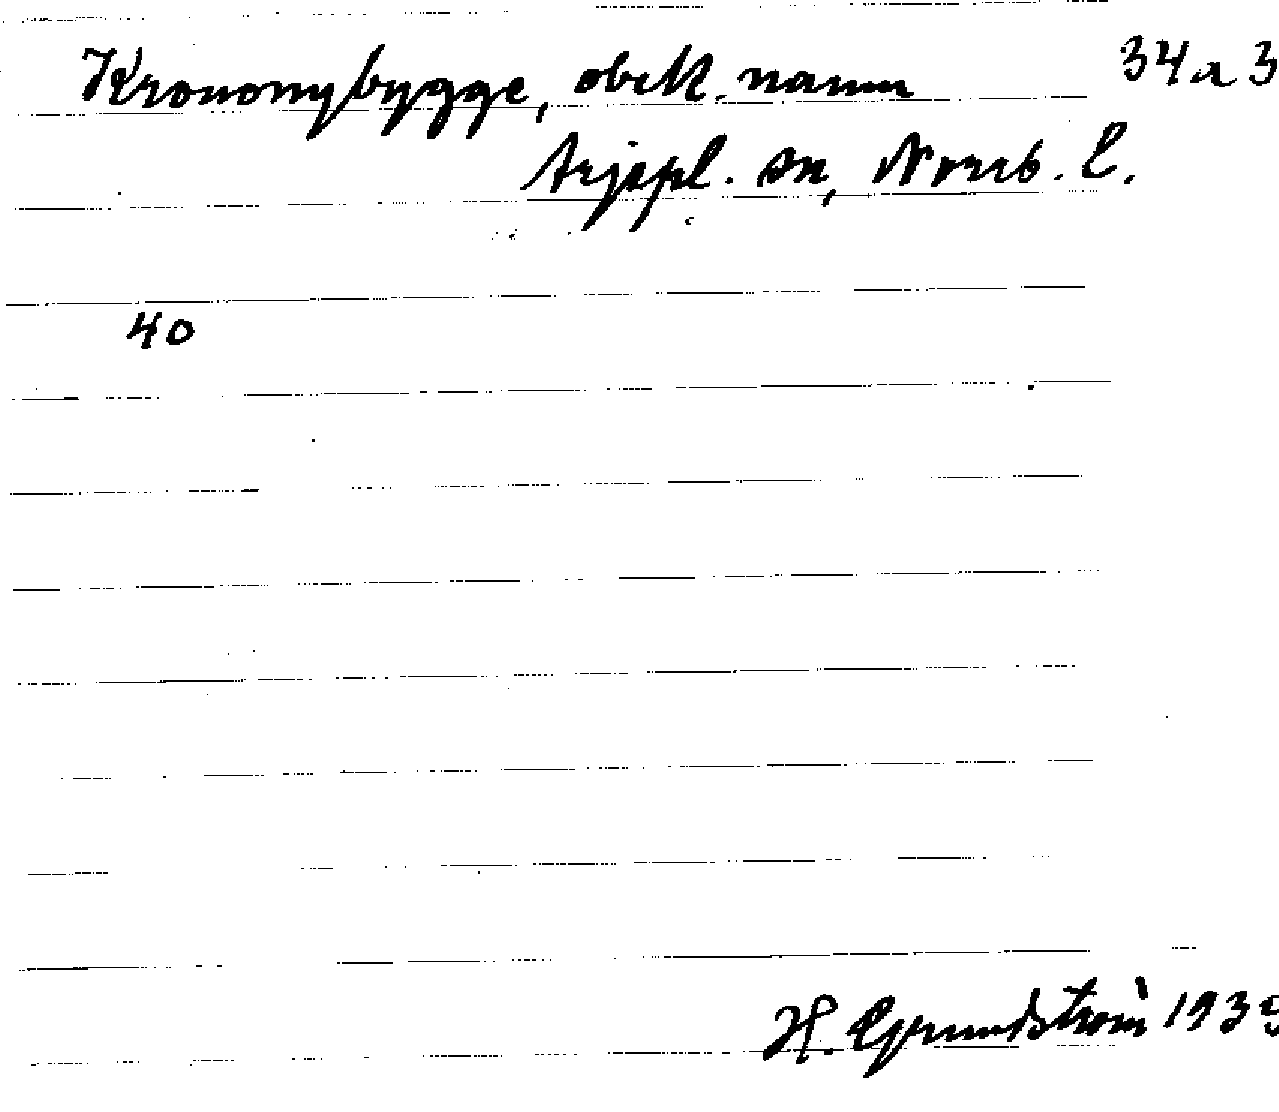 Krononybygge, obekt. namn 34 a 3
Arjepl. sn, Norrb. l.
40
H. Grundström 193